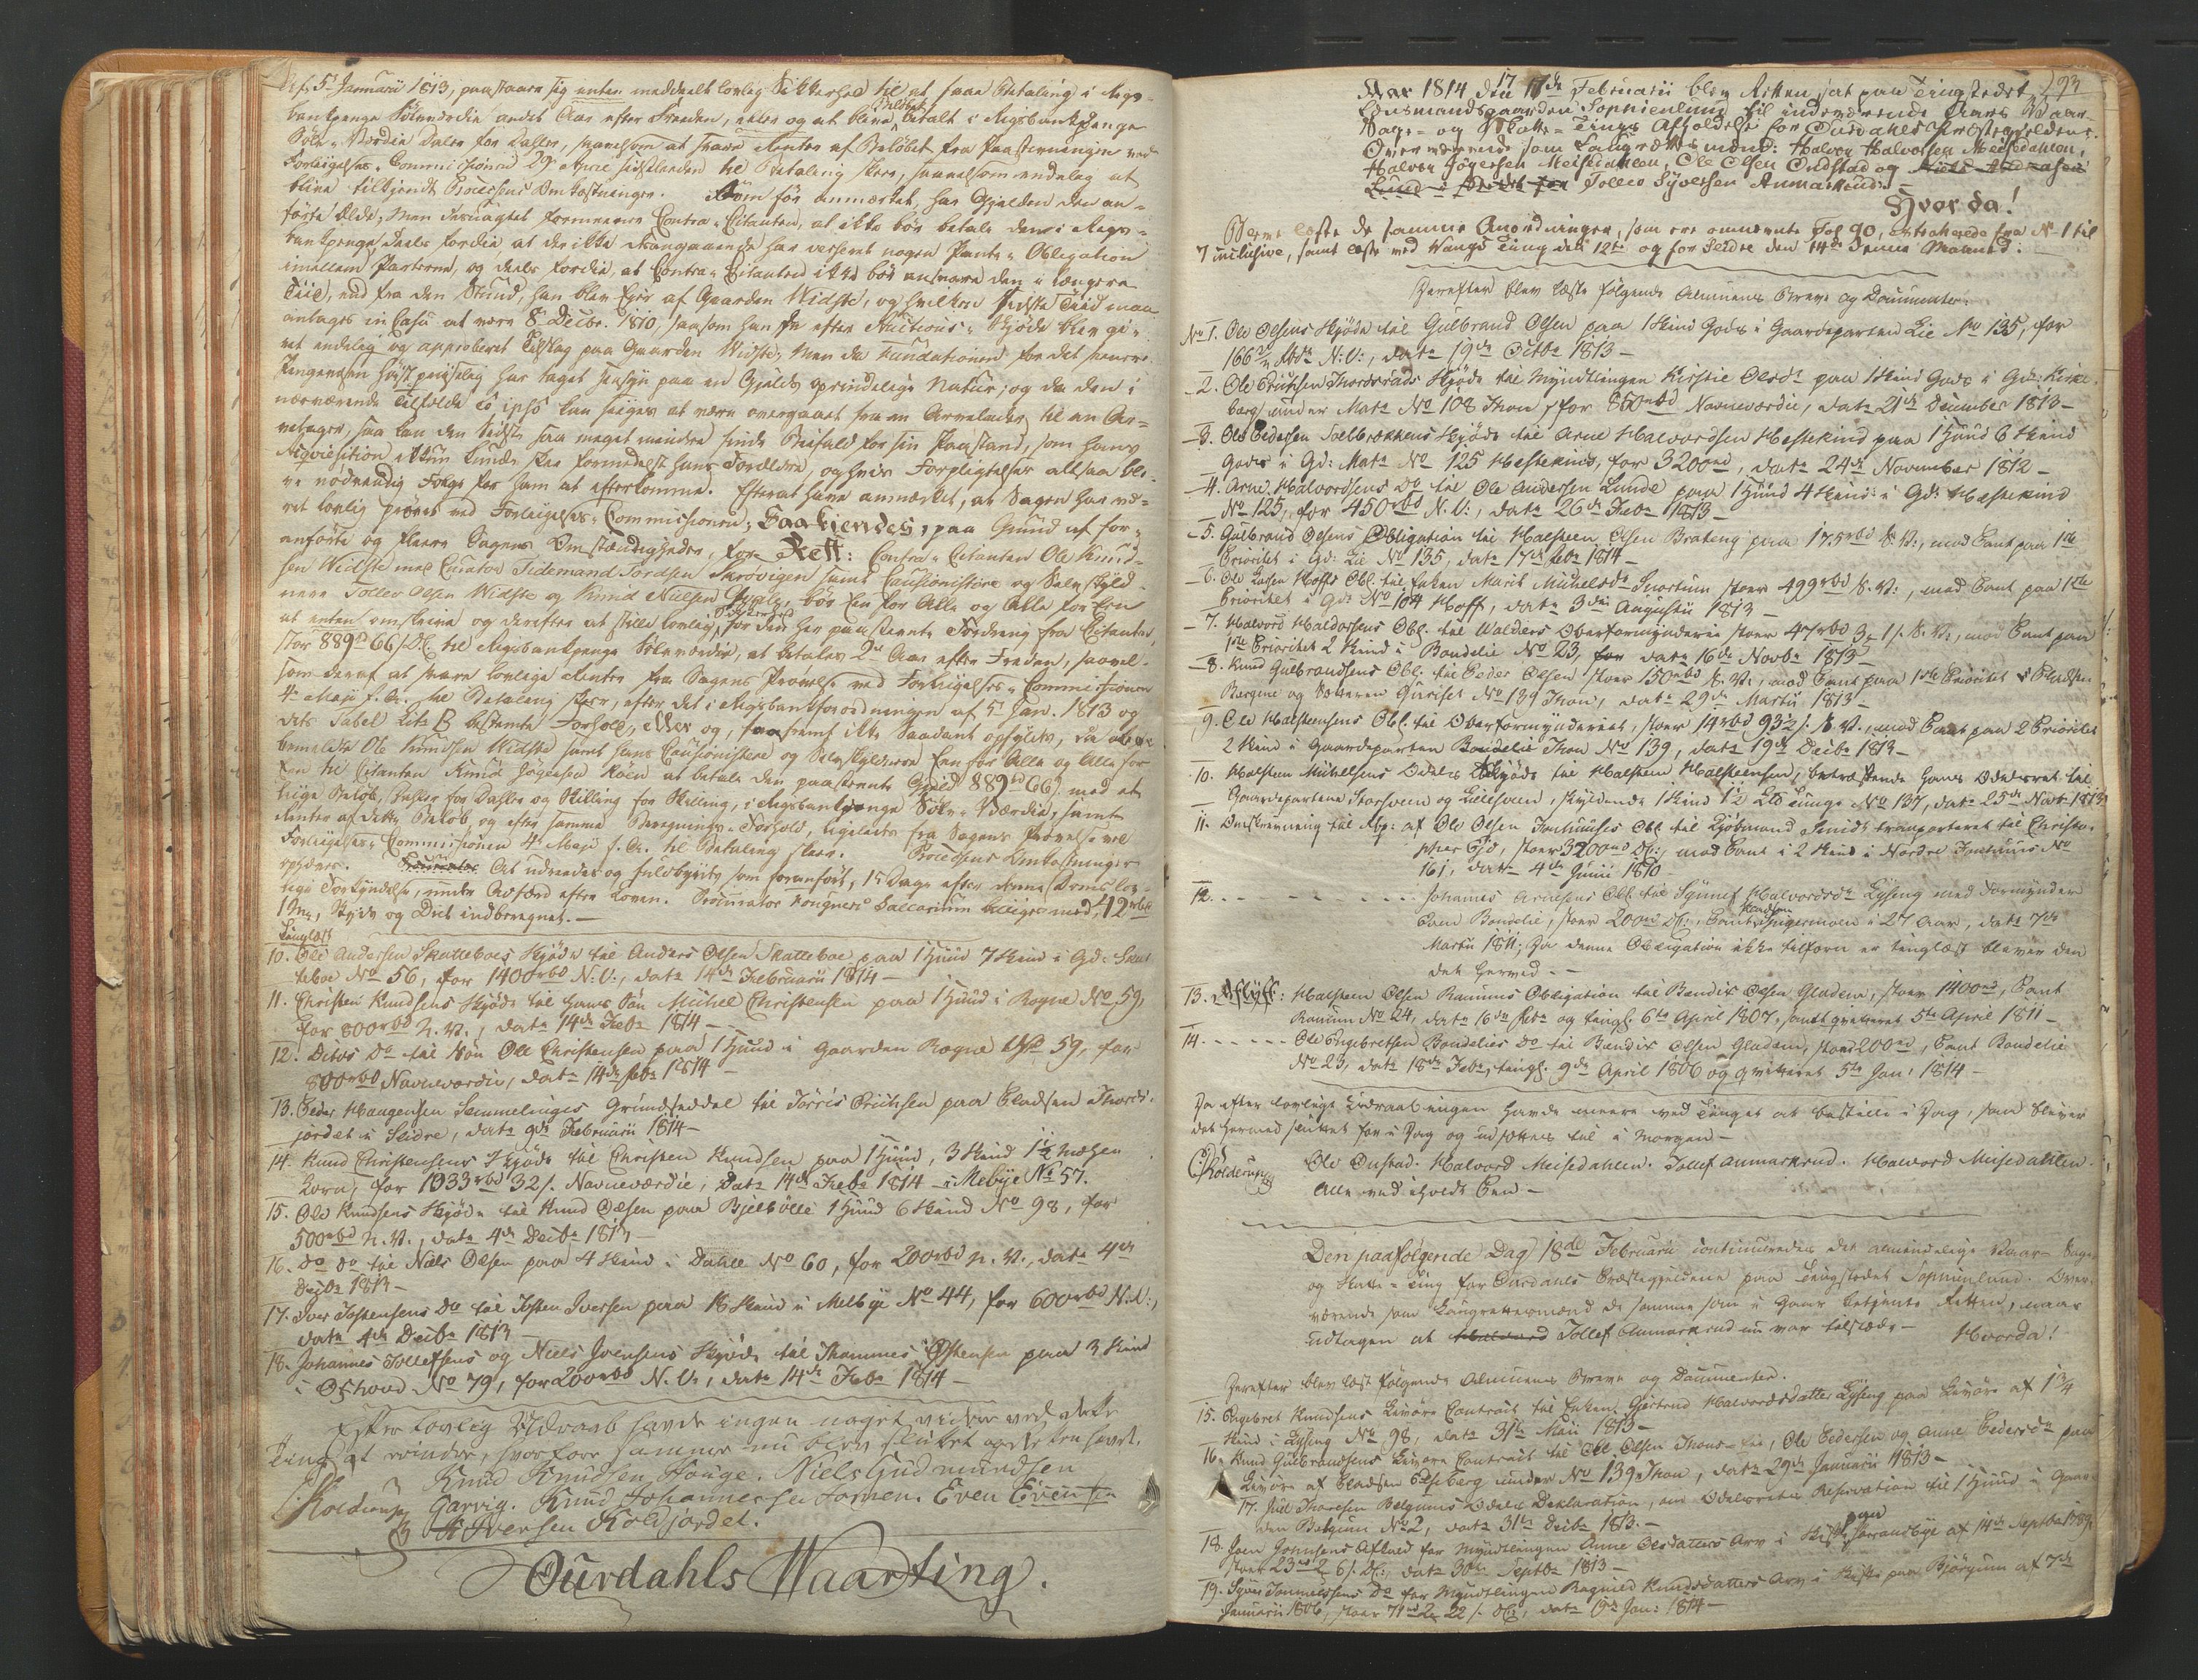 af 5 Januarii 1813, paastaaer sig enten meddeelt lovlig Sikkerhed til at faae Betaling i Rigs-
bankpenge Sölvværdie andet Aar efter Freden, eller og at blive betalt i Rigsbankpenge
Sölv-Værdie Daler for Daler, saavelsom at svare Renter af Belöbet fra Paastevningen ved
Forligelses-Commissionen 29 April sidstleden til Betaling skeer, saavelsom endelig at
blive tilkjendt Processens Omkostninger.
förte Gield; men desuagtet formener Contra-Citanten, at ikke bör betale den i Rigs-
bankpenge, deels fordi, at der ikke har verseret nogen Pante-Obligation
imellem Parterne, og deels fordi, at Contra-Citanten ikke bör ansvare den i længere
Tiid, end fra den Stund, han blev Eier af Gaarden Widste, og hvilken sidste Tiid maa
antages in Casu at være 8 Decbr. 1810, saasom han da efter Auctions-Skjöde blev gi-
vet endelig og approberet Tilslag paa Gaarden Widste; Men da Fundationen for det
har taget Hensyn paa en Gjælds oprindelige Natur; og da den i
nærværende Tilfælde eo ipso kan siges at være overgaaet fra en Arvelader til en Ar-
vetager, saa kan den Sidste saa meget mindre finde Beifald for sin Paastand, som hans
Aqvisition ikkun kunde skee formedelst hans Forældre, og hvis Forpligtelser altsaa ble-
ve nödvendig Fölge for ham at efterkomme. Efterat have anmærket, at Sagen har væ-
ret lovlig prövet ved Forligelses-Commissionen, Paakiendes, paa Grund af for-
anförte og flere Sagens Omstændigheder, for Rett: Contra-Citanten Ole Knud-
sen Widste med Curator Tidemand Tordsen Skrövigen samt Cautionistere og Selvskyld-
nere Tollev Olsen Widste og Knud Nielsen bör Een for Alle og Alle for Een
at enten omskrive og derefter at stille lovlig Sikkerhed for den her paastevnte Fordring fra Citanten,
stor 889 rd 66 s. D.C. til Rigsbankpenge Sölvværdie, at betales 2det Aar efter Freden, saavel-
som deraf at svare lovlige Renter fra Sagens Prövelse ved Forligelses-Commissionen
4 Maji f. A. til Betaling skeer, efter det i Rigsbankforordningen af 5 Jan. 1813 og
dets Tabel Litr B bestemte Forhold, eller og, saafremt ikke Saadant opfyldes, da
bemeldte Ole Knudsen Widste samt hans Cautionistere og Selvskyldnere Een for Alle og Alle for
Een til Citanten Knud Jögensen at betale den paastevnte Gjæld 889 rd 66 s. med et
Belöb, Daler for Daler og Skilling for Skilling, i Rigsbankpenge Sölv-Værdie, samt
Renter af dette Belöb og efter samme Beregnings-Forhold, ligeledes fra Sagens Prövelse ved
Forligelses-Commissionen 4 Maji f. A. til Betaling skeer. Processens Omkostninger
ophæves. At udredes og fuldbyrdes som foranfört, 15 Dage efter denne Doms lov-
lige Forkyndelse, under Adfærd efter Loven. Procurator Salarium med 12 rbd
Skyds og Diet indberegnet.
Tinglæst
10. Ole Andersen Skatteboes Skjöde til Anders Olsen Skatteboe paa 1 Huud 7 Skind i Gd: Skat-
teboe No 56, for 1400 rbd N. V., dat: 14de Februarii 1814 —
11. Christen Knudsens Skjöde til hans Sön Mikel Christensen paa 1 Huud i Rogne No 59,
for 800 rbd N. V., dat: 14de Feb: 1814 —
12. Ditos Do til Sön Ole Christensen paa 1 Huud i Gaarden Rogne No 59, for
800 rbd Navneværdie, dat: 14de Feb: 1814 —
13. Peder Haagensen Semmelinges Grundseddel til Torris Erichsen paa Pladsen Thords-
jordet i Slidre, dat: 9de Februarii 1814 —
14. Knud Christensens Skjöde til Christen Knudsen paa 1 Huud, 3 Skind 1 1/2
Korn, for 1933 rbd 32 s. Navneværdie, dat: 14de Feb: 1814 — i Mebÿe No 57.
15. Ole Knudsens Skjöde til Knud Olsen paa Bjelbölle 1 Huud 6 Skind No 98, for
500 rbd N. V., dat: 4de Decbr 1813 —
16. Do Do til Niels Olsen paa 4 Skind i Dahle No 60, for 200 rbd N. V., dat: 4de
Decbr 1813 —
17. Iver Jostensens Do til Josten Iversen paa 16 Skind i Melbÿe No 44, for 600 rbd N. V.,
dat: 4de Decbr 1813 —
18. Johannes Tollefsens og Niels Joensens Skjöde til Thommes Östensen paa 3 Skind
i No 79, for 200 rbd N. V., dat: 14de Feb: 1814 —
Efter lovlig Udraab havde ingen noget videre ved dette
Ting at erindre, hvorfor samme nu blev sluttet og Retten hævet.
Kolderup
Knud Knudsen Houge. Niels Gudmundsen
Garvig. Knud Johannesen Even Evensen
Iversen Koldjordet.
Ourdahls Waarting.
93
Aar 1814 den 17de Februarii blev Retten sat paa Tingstedet,
Lensmandsgaarden Sophienlund til indeværende Aars Waar-
Sage- og Skatte-Tings Afholdelse for Ourdahls Præstegieldene.
Overværende som Laugrettesmænd: Halvor Halvorsen Meisedahlen,
Halvor Jögersen Meisedahlen, Ole Olsen Onstad og
Tollev Syversen Anmarkrud.
Hvor da!
Bleve læste de samme Anordninger, som ere omnævnte Fol 90, extraherede fra No 1 til
7 inclusive, samt læst ved Wangs Ting den 12te og for Slidre den 14de denne Maaned.
Derefter blev læste fölgende Almuens Breve og Documenter:
No 1. Ole Olsens Skjöde til Gulbrand Olsen paa 1 Skind Gods i Gaardeparten Lie No 135, for
166 2/3 rbd N: V:, dat: 19de Octbr 1813 —
2. Ole Erichsen Thordsrads Skjöde til Myndtlingen Kirstie Olsdr paa 1 Skind Gods i Gd: Kirke-
berg under Matr No 108 Thon, for 850 rbd Navneværdie, dat: 21de December 1813 —
3. Ole Pedersen Tolbrækkens Skjöde til Arne Halvordsen Hestekind paa 1 Huud 6 Skind
Gods i Gd: Matr No 125 Hestekind, for 3200 rd, dat: 24de November 1812 —
4. Arne Halvordsens Do til Ole Andersen Lunde paa 1 Huud 4 Skind i Gd: Hestekind
No 125, for 450 rbd N. V:, dat: 26de Feb: 1813 —
5. Gulbrand Olsens Obligation til Halsteen Olsen Brateng paa 175 rbd S. V:, mod Pant paa 1ste
Prioritet i Gd: Lie No 135, dat: 17de Feb: 1814 —
6. Ole Larsen Hoffs Obl. til Enken Marit Mikelsdr Snortum stor 499 rbd S. V:, med Pant paa 1ste
Prioritet i Gd: No 104 Hoff, dat: 3die Augustii 1813 —
7. Halvord Haldorsens Obl. til Walders Overformynderie stor 47 rbd 3 1 s. S. V:, mod Pant paa
1ste Prioritet 2 Skind i Bondelie No 23, dat: 16de Novbr 1813 —
8. Knud Gulbrandsens Obl. til Peder Olsen stor 150 rbd S. V:, mod Pant paa 1ste Prioritet i Pladsen
Bergene og No 139 Thon, dat: 29de Martii 1813 —
9. Ole Halsteensens Obl. til Overformynderiet, stor 14 rbd 93 1/2 s. S. V., mod Pant paa 2 Prioritet
2 Skind i Gaardeparten Bondelie Thon No 139, dat: 19de Decbr 1813 —
10. Halsteen Mikelsens Odels Skjöde til Halsteen Halsteensen, betræffende hans Odelsret til
Gaardeparterne Storsveen og Lillesveen, skyldende 1 Skind 1 1/2 No 137, dat: 25de Novbr 1813
11. Omskrivning til Rbp: af Ole Olsen Jonhuuses Obl. til Kjöbmand Smidt transporteret til Christo-
pher stor 3200 rd D.C:, mod Pant i 2 Skind i Nordre Jonhuus No
161, dat: 4de Junii 1810
12. - - - Johannes Arnesens Obl. til Synnef Halvordsdr Lysing med Formynder
Bondelie, stor 200 rd D.C:, Pant Pladsen Ingermoen i 27 Aar, dat: 7de
Martii 1811; Da denne Obligation ikke tilforn er tinglæst bliver den
det herved. - -
13. Aflyst: Halsteen Olsen Ranums Obligation til Bendix Olsen Gladem, stor 1400 rd, Pant
Ranum No 24, dat: 16de Feb: og tingl. 6te April 1807, samt qvitteret 5te April 1811 —
14. - - - Ole Engebretsen Bondelies Do til Bendix Olsen Gladem, stor 200 rd, Pant Bondelie
No 23, dat: 18de Feb:, tingl. 9de April 1806 og qvitteret 5te Jan: 1814 —
Da efter lovligt Udraab ingen havde meere ved Tinget at bestille i Dag, saa bliver
det hermed sluttet for i Dag og udsættes til i Morgen —
Kolderup
Ole Onstad. Halvord Meisedahlen. Tollef Anmarkrud. Halvord Meisedahlen.
Alle ved iholdt Pen —
Den paafölgende Dag 18de Februarii continueredes det almindelige Vaar-Sage
og Skatte-Ting for Ourdahls Præstegjeldene paa Tingstedet Sophienlund. Over-
værende som Laugrettesmænd de samme som i Gaar betjente Retten, naar
undtagen at Tollef Anmarkrud nu var tilstæde —
Hvorda!
Derefter blev læst fölgende Almuens Breve og Documenter.
15. Engebret Knudsens Livöre Contract til Enken Gjertrud Halvordsdatter Lysing paa Livöre af 1 3/4
Skind i Lysing No 98, dat: 31te Maii 1813 —
16. Knud Gulbrandsens Livöre Contract til Ole Olsen Ole Pedersen og Anne Pedersdr paa
Livöre af Pladsen under No 139 Thon, dat: 29de Januarii 1813 —
17. Juel Thoresen Belgums Odels Declaration, om Odelsrets Reservation til 1 Huud i Gaar-
den Belgum No 2, dat: 31te Decbr 1813. —
18. Joen Johnsens Afkald for Myndtlingen Anne Olsdatters Arv i Skifte paa Forransbye af 14de Septbr 1789,
stor 23 rd 2 6 s. D.C:, dat: 30te Septbr 1813 —
19. Do for Myndtlingen Ragnild Knudsdatters Arv i Skifte paa Björgum af 7de
Januarii 1806, stor 71 rd 2 22 s. D.C:, dat: Jan: 1814 —